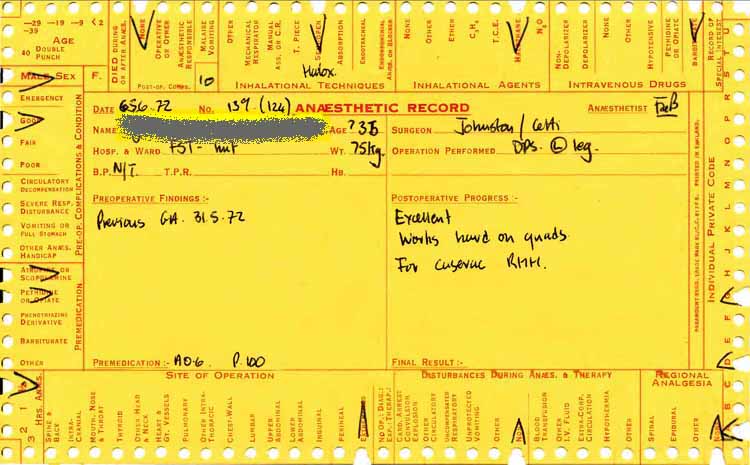 -29 -19 -9 <2
-39
AGE
40 DOUBLE PUNCH
MALE SEX F.
DIED DURING OR AFTER ANÆS.
NONE
OPERATIVE OR OTHER
ANÆSTHETIC RESPONSIBLE
MALAISE VOMITING
OTHER
POST-OP. COMPS.
10
MECHANICAL RESPIRATOR
MANUAL ASS. OR C.R.
T. PIECE
SEMI-OPEN
ABSORPTION
ENDOTRACHEAL
Halox.
INHALATIONAL TECHNIQUES
NONE
OTHER
ETHER
C₃H₆
T.C.E.
HALOTHANE
N₂O
INHALATIONAL AGENTS
NONE
NON-DEPOLARIZER
DEPOLARIZER
OTHER
HYPOTENSIVE
PETHIDINE OR OPIATE
BARBITURATE
INTRAVENOUS DRUGS
RECORD OF SPECIAL INTEREST
DATE 6.5.6.72 NO. 139 (124) ANÆSTHETIC RECORD ANÆSTHETIST
NAME AGE ?35 SURGEON Johnston / Cetti
HOSP. & WARD FST - hut WT. 75kg. OPERATION PERFORMED DPS. (L) leg.
B.P. N/T. T.P.R. HB.
PREOPERATIVE FINDINGS :-
Previous GA. 31.5.72
POSTOPERATIVE PROGRESS :-
Excellent
Works hard on quads
For casevac RHH.
PREMEDICATION :- A0.6 P.100
FINAL RESULT :-
EMERGENCY
GOOD
FAIR
POOR
CIRCULATORY DECOMPENSATION
SEVERE RESP. DISTURBANCE
VOMITING OR FULL STOMACH
OTHER ANÆS. HANDICAP
PRE-OP. COMPLICATIONS & CONDITION
ATROPINE OR SCOPOLAMINE
PETHIDINE OR OPIATE
PHENOTHIAZINE DERIVATIVE
BARBITURATE
OTHER
PREMEDICATION
PRINTED IN ENGLAND.
INDIVIDUAL PRIVATE CODE
R S T U
A B C D E F G H I J K L M N O P Q
3 2 1
HRS. ANÆS.
SITE OF OPERATION
SPINE & BACK
INTRA-CRANIAL
MOUTH, NOSE & THROAT
THYROID
OTHER HEAD & NECK
HEART & GT. VESSELS
PULMONARY
OTHER INTRA-THORACIC
CHEST-WALL
LUMBAR
UPPER ABDOMINAL
LOWER ABDOMINAL
INGUINAL
PERINEAL
DISTURBANCES DURING ANÆS. & THERAPY
CARD. ARREST
CONVULSION EXPLOSION
OTHER CIRCULATORY
UNCOMPENSATED RESPIRATORY
UNPROTECTED VOMITING
OTHER
BLOOD TRANSFUSION
OTHER I.V. FLUID
EXTRA-CORP. CIRCULATION
HYPOTHERMIA
OTHER
REGIONAL ANALGESIA
SPINAL
EPIDURAL
OTHER